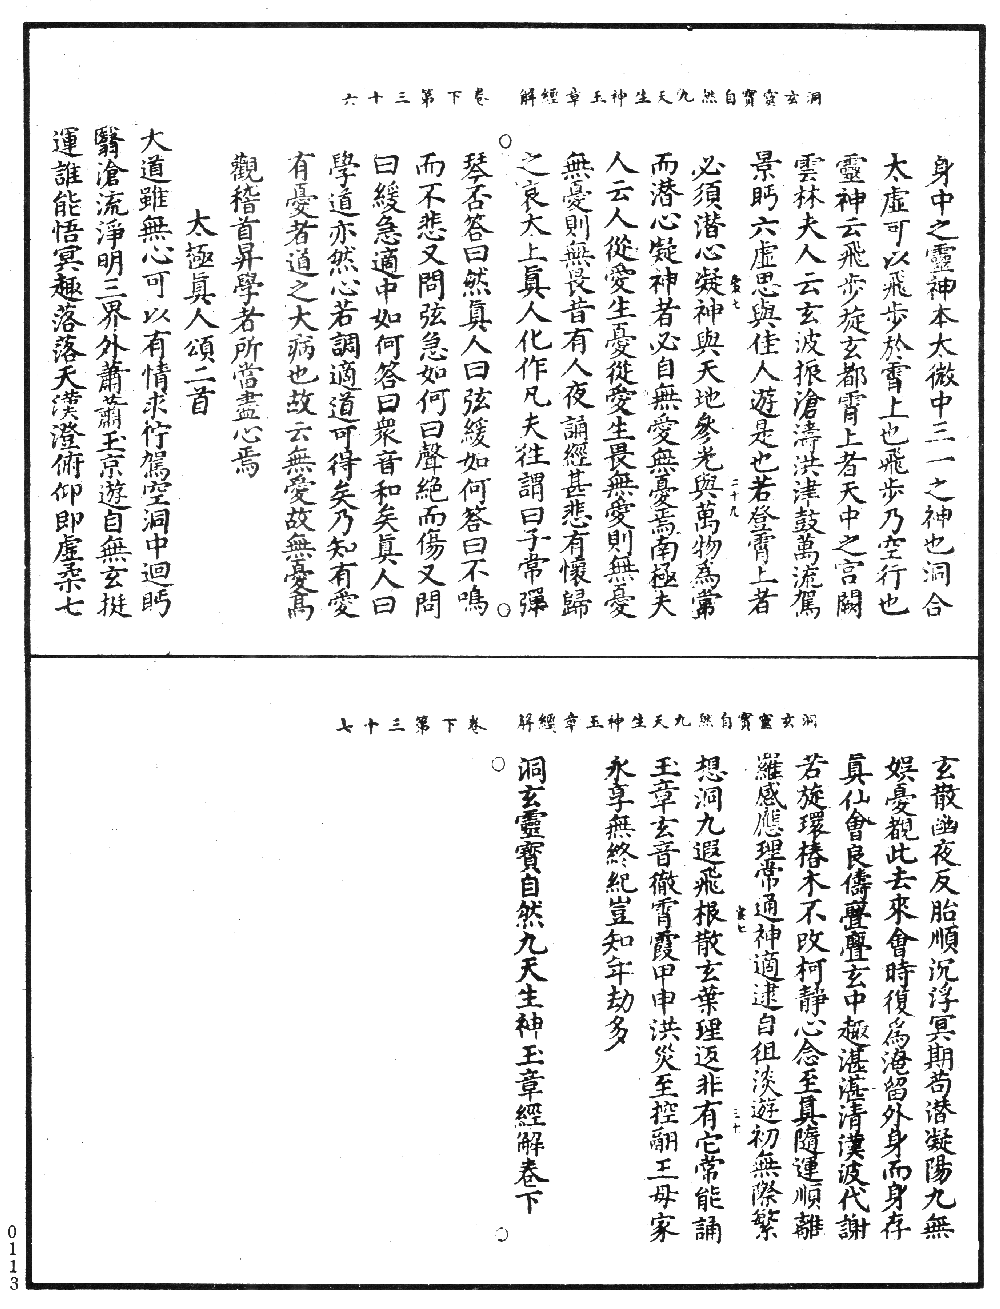 洞玄靈寶自然九天生神玉章經解 卷下第三十六
身中之靈神本太微中三一之神也洞合
太虛可以飛步於霄上也飛步乃空行也
靈神云飛步旋玄都霄上者天中之宫闕
雲林夫人云玄波振滄濤洪津鼓萬流駕
景眄六虛思與佳人遊是也若登霄上者
必須潛心凝神與天地參光與萬物為常
而潛心凝神者必自無愛無憂焉南極夫
人云人從愛生憂從愛生畏無愛則無憂
無憂則無畏昔有人夜誦經甚悲有懷歸
之哀太上真人化作凡夫往謂曰子常彈
琴否答曰然真人曰弦緩如何答曰不鳴
而不悲又問弦急如何曰聲絶而傷又問
曰緩急適中如何答曰衆音和矣真人曰
學道亦然心若調適道可得矣乃知有愛
有憂者道之大病也故云無愛故無憂髙
觀稽首昇學者所當盡心焉
太極真人頌二首
大道雖無心可以有情求佇駕空洞中迴眄
翳滄流淨明三界外蕭蕭玉京遊自無玄挺
運誰能悟冥趣落落天漢澄俯仰即虛柔七
洞玄靈寶自然九天生神玉章經解 卷下第三十七
玄散幽夜反胎順沉浮冥期苟潛凝陽九無
娛憂覩此去來會時復為淹留外身而身存
真仙會良儔亹亹玄中趣湛湛清漢波代謝
若旋環椿木不改柯靜心念至真隨運順離
羅感應理常通神適逮自徂淡遊初無際繁
想洞九遐飛根散玄葉理返非有它常能誦
玉章玄音徹霄霞甲申洪災至控翮王母家
永享無終紀豈知年劫多
洞玄靈寶自然九天生神玉章經解卷下
二十九
三十
0113